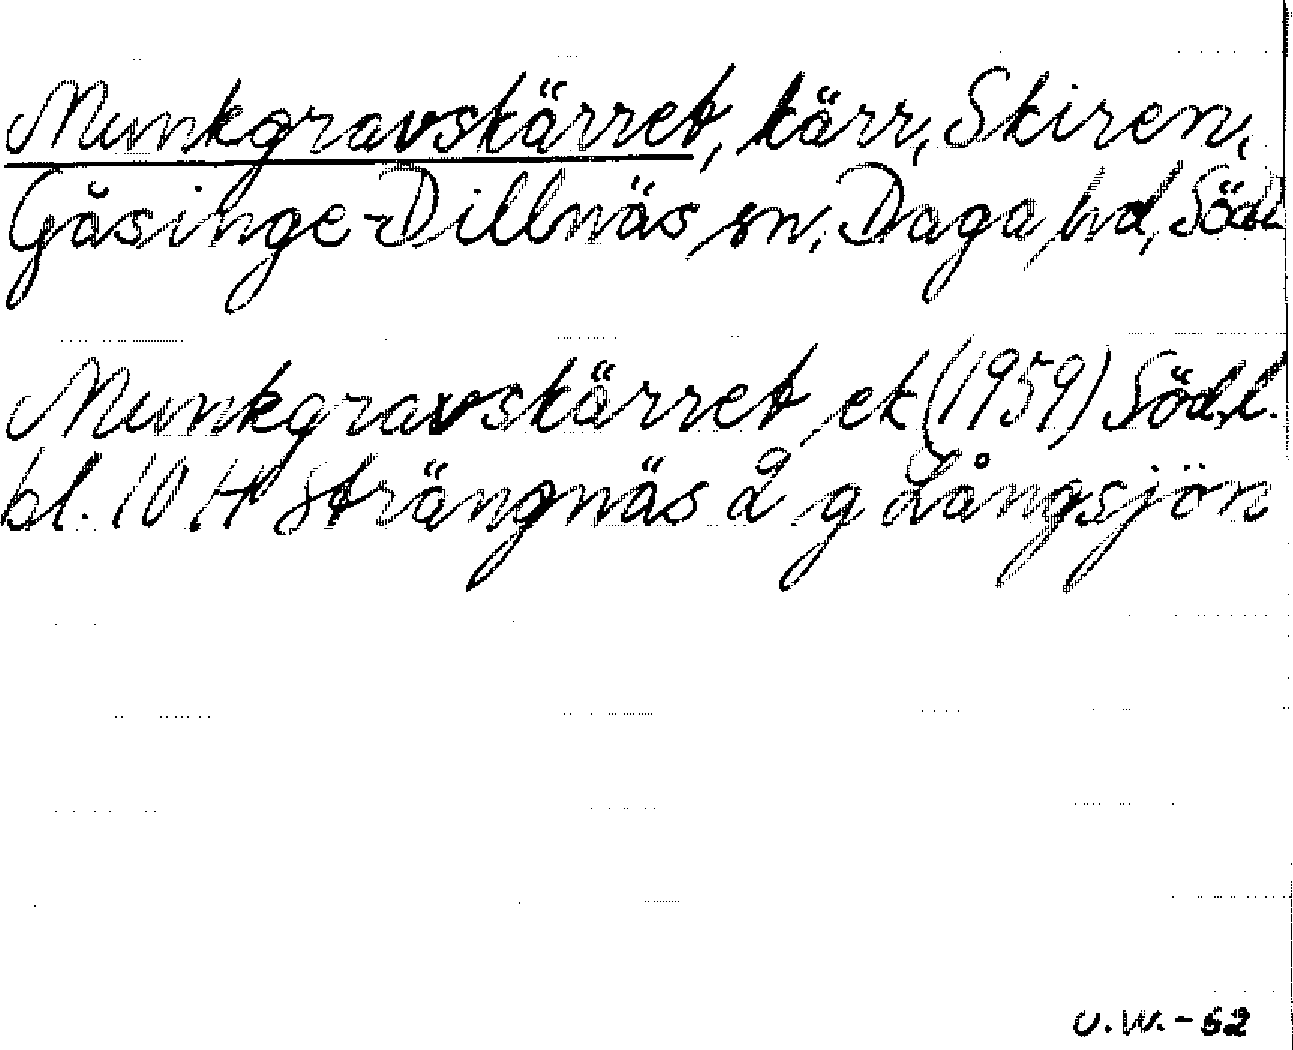 Munkgravskärret, kärr, Skiren,
Gåsinge-Dillnäs sn, Daga hd, Södl
Munkgravskärret ek (1959) Södl.
bl. 10 H Strängnäs 2 g Långsjön
U.W.-62